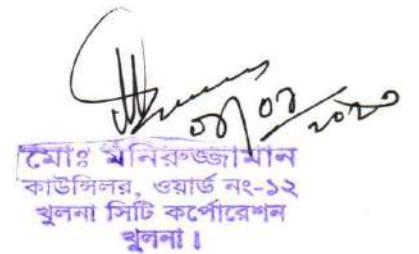 মোঃ মনিরুজ্জামান
কাউন্সিলর, ওয়ার্ড নং-১২
খুলনা সিটি কর্পোরেশন
খুলনা।